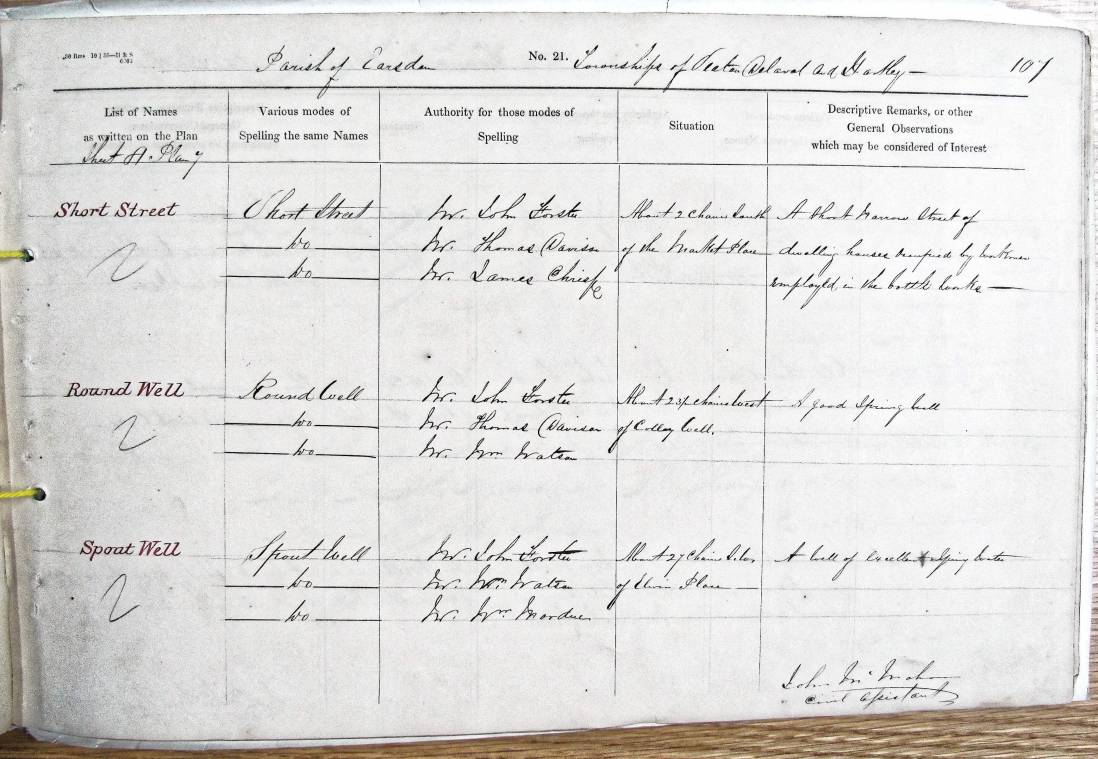 Parish of Earsdon No. 21. Townships of Seaton Delaval and Hartley— 107
List of Names
as written on the Plan
Sheet A Plan 7
Various modes of
Spelling the same Names
Authority for those modes of
Spelling
Situation
Descriptive Remarks, or other
General Observations
which may be considered of Interest
Short Street Short Street Mr. John Forster About 2 Chains South A Short Narrow Street of
Do Mr. Thomas Davison of the Market Place dwelling houses occupied by workmen
Do Mr. James Chrisp employed in the bottle works —
Round Well Round Well Mr. John Forster About chains West A good Spring well
Do Mr. Thomas Davison of Colley Well.
Do Mr. Wm Watson
Spout Well Spout Well Mr. John Forster About 27 Chains A well of excellent Spring water
Do Mr. Wm Watson of Place —
Do Mr. Wm Mordue
John Mc Mahon
Civil Assistant